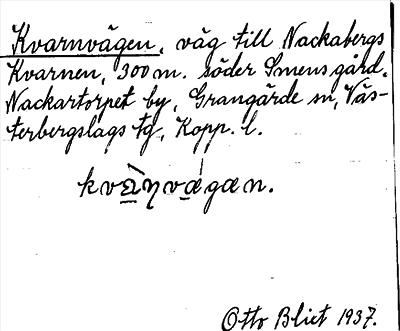 Kvarnvägen, väg till Nackabergs
Kvarnen, 300 m. söder Smensgård,
Nackartorpet by, Grangärde sn, Väs-
terbergslags tg, Kopp. l.
kvὰ̠ŋvǽ̠gæn.
Otto Blixt 1937.